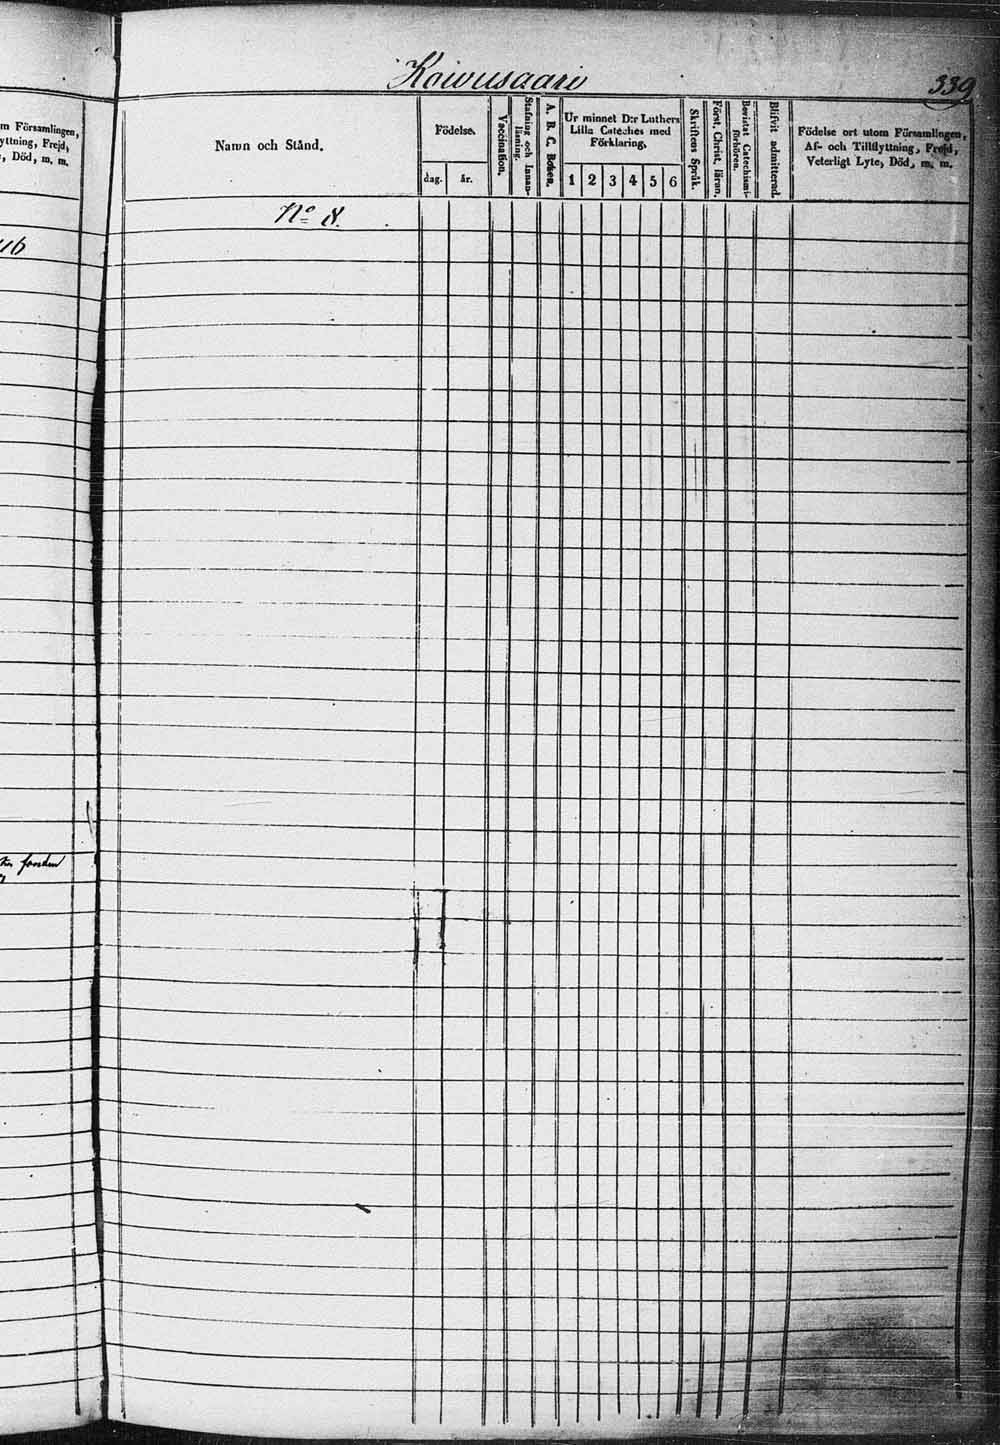 Koivusaari
339
m Församlingen,
yttning, Frejd,
, Död, m. m.
Namn och Stånd.
Födelse.
dag.
år.
Vaccination.
Stafning och Innan-
läsning.
A. B. C. Boken.
Ur minnet D:r Luthers
Lilla Cateches med
Förklaring.
1 2 3 4 5 6
Skriftens Språk.
Först. Christ. läran.
Bevistat Catechismi-
förhören.
Blifvit admitterad.
Födelse ort utom Församlingen,
Af- och Tillflyttning, Frejd,
Veterligt Lyte, Död, m. m.
No 8.